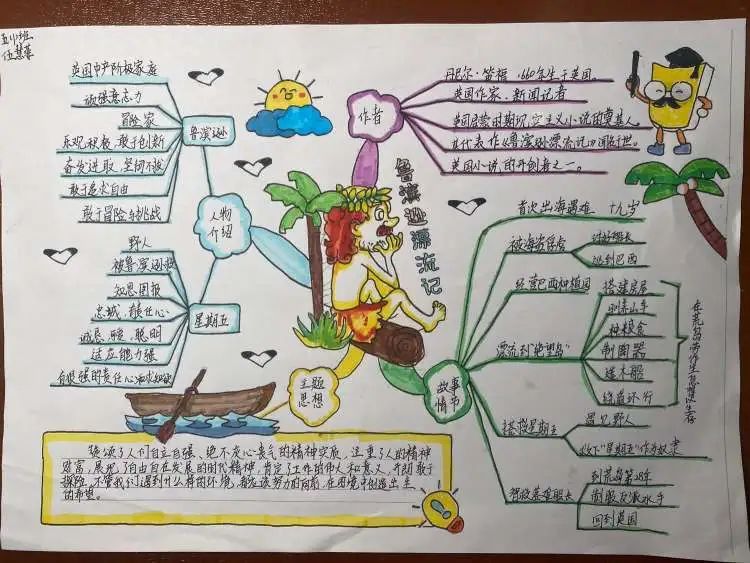 五(1)班
鲁滨逊漂流记
作者
丹尼尔·笛福 1660年生于英国。
英国作家·新闻记者
英国启蒙时期现实主义小说的奠基人。
其代表作《鲁滨逊漂流记》闻名于世。
英国小说的开创者之一。
人物介绍
鲁滨逊
英国中产阶级家庭
顽强意志力
冒险家
乐观积极 敢于创新
奋发进取 坚韧不拔
敢于追求自由
敢于冒险与挑战
星期五
野人
被鲁滨逊救
知恩图报
忠诚、有责任心
诚恳、聪明
适应能力强
有很强的责任心和求知欲
主题思想
颂了人们自立自强、绝不灰心丧气的精神实质,注重了人的精神
财富,展现了自由自在发展的时代精神,肯定了工作的伟大和意义,开朗敢于
探险,不管我们遇到什么样的环境,都应该努力的向前,在困境中创造出生
的希望。
故事情节
首次出海遇难 十九岁
被海盗俘虏
讨好船长
逃到巴西
经营巴西种植园
漂流到"绝望岛"
搭建房屋
驯养山羊
种粮食
制陶器
造木船
绕岛环行
在荒岛劳作生息想法生存
搭救星期五
遇见野人
收下"星期五"作为奴隶
帮救英国船长
到荒岛第28年
制服反叛水手
回到英国